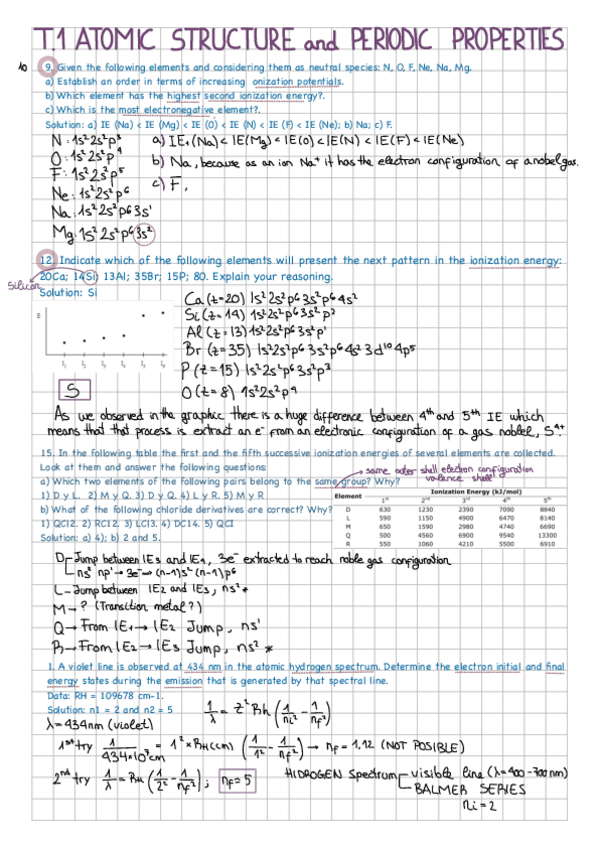 T.1 ATOMIC STRUCTURE and PERIODIC PROPERTIES
10
9. Given the following elements and considering them as neutral species: N, O, F, Ne, Na, Mg.
a) Establish an order in terms of increasing onization potentials.
b) Which element has the highest second ionization energy?.
c) Which is the most electronegative element?.
Solution: a) IE (Na) < IE (Mg) < IE (O) < IE (N) < IE (F) < IE (Ne); b) Na; c) F.
N : 1s² 2s² p³
a) IE₁(Na) < IE(Mg) < IE(O) < IE(N) < IE(F) < IE(Ne)
O : 1s² 2s² p⁴
b) Na, because as an ion Na⁺ it has the electron configuration of a nobel gas.
F : 1s² 2s² p⁵
c) F.
Ne : 1s² 2s² p⁶
Na : 1s² 2s² p⁶ 3s¹
Mg : 1s² 2s² p⁶ 3s²
12. Indicate which of the following elements will present the next pattern in the ionization energy:
20Ca; 14Si; 13Al; 35Br; 15P; 8O. Explain your reasoning.
Silicon
Solution: Si
E
I₁ I₂ I₃ I₄ I₅ I₆
Ca (z=20) 1s² 2s² p⁶ 3s² p⁶ 4s²
Si (z=14) 1s² 2s² p⁶ 3s² p²
Al (z=13) 1s² 2s² p⁶ 3s² p¹
Br (z=35) 1s² 2s² p⁶ 3s² p⁶ 4s² 3d¹⁰ 4p⁵
P (z=15) 1s² 2s² p⁶ 3s² p³
O (z=8) 1s² 2s² p⁴
S
As we observed in the graphic there is a huge difference between 4th and 5th IE which
means that that process is extract an e⁻ from an electronic configuration of a gas noblel, S⁴⁺.
15. In the following table the first and the fifth successive ionization energies of several elements are collected.
Look at them and answer the following questions:
same outer shell electron configuration
valance shell
a) Which two elements of the following pairs belong to the same group? Why?
1) D y L. 2) M y Q. 3) D y Q. 4) L y R. 5) M y R
b) What of the following chloride derivatives are correct? Why?
1) QCl2. 2) RCl2. 3) LCl3. 4) DCl4. 5) QCl
Solution: a) 4); b) 2 and 5.
Element Ionization Energy (kJ/mol)
1st 2nd 3rd 4th 5th
D 630 1230 2390 7090 8840
L 590 1150 4900 6470 8140
M 650 1590 2980 4740 6690
Q 500 4560 6900 9540 13300
R 550 1060 4210 5500 6910
D - Jump between IE3 and IE4, 3e⁻ extracted to reach noble gas configuration
ns² np¹ → 3e⁻ → (n-1)s² (n-1)p⁶
L - Jump between IE2 and IE3, ns² *
M → ? (Transition metal?)
Q → From IE1 → IE2 Jump, ns¹
R → From IE2 → IE3 Jump, ns² *
1. A violet line is observed at 434 nm in the atomic hydrogen spectrum. Determine the electron initial and final
energy states during the emission that is generated by that spectral line.
Data: RH = 109678 cm-1.
Solution: n1 = 2 and n2 = 5
1/λ = Z² Rh (1/ni² - 1/nf²)
λ = 434nm (violet)
1st try 1/434×10⁻⁷cm = 1² × RH(cm) (1/1² - 1/nf²) → nf = 1,12 (NOT POSIBLE)
2nd try 1/λ = RH (1/2² - 1/nf²) ; nf = 5
HIDROGEN Spectrum visible line (λ=400-700nm)
BALMER SERIES
ni = 2